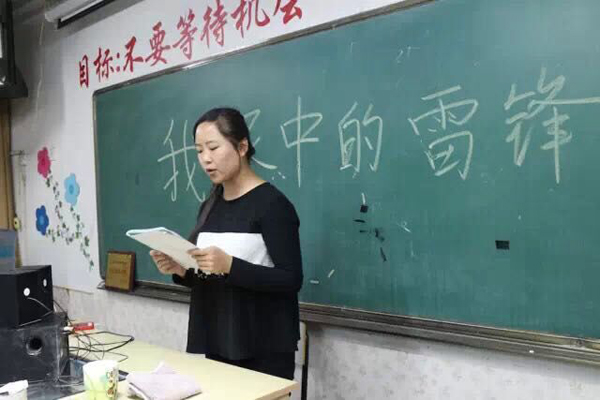 目标:不要等待机会
我中的雷锋